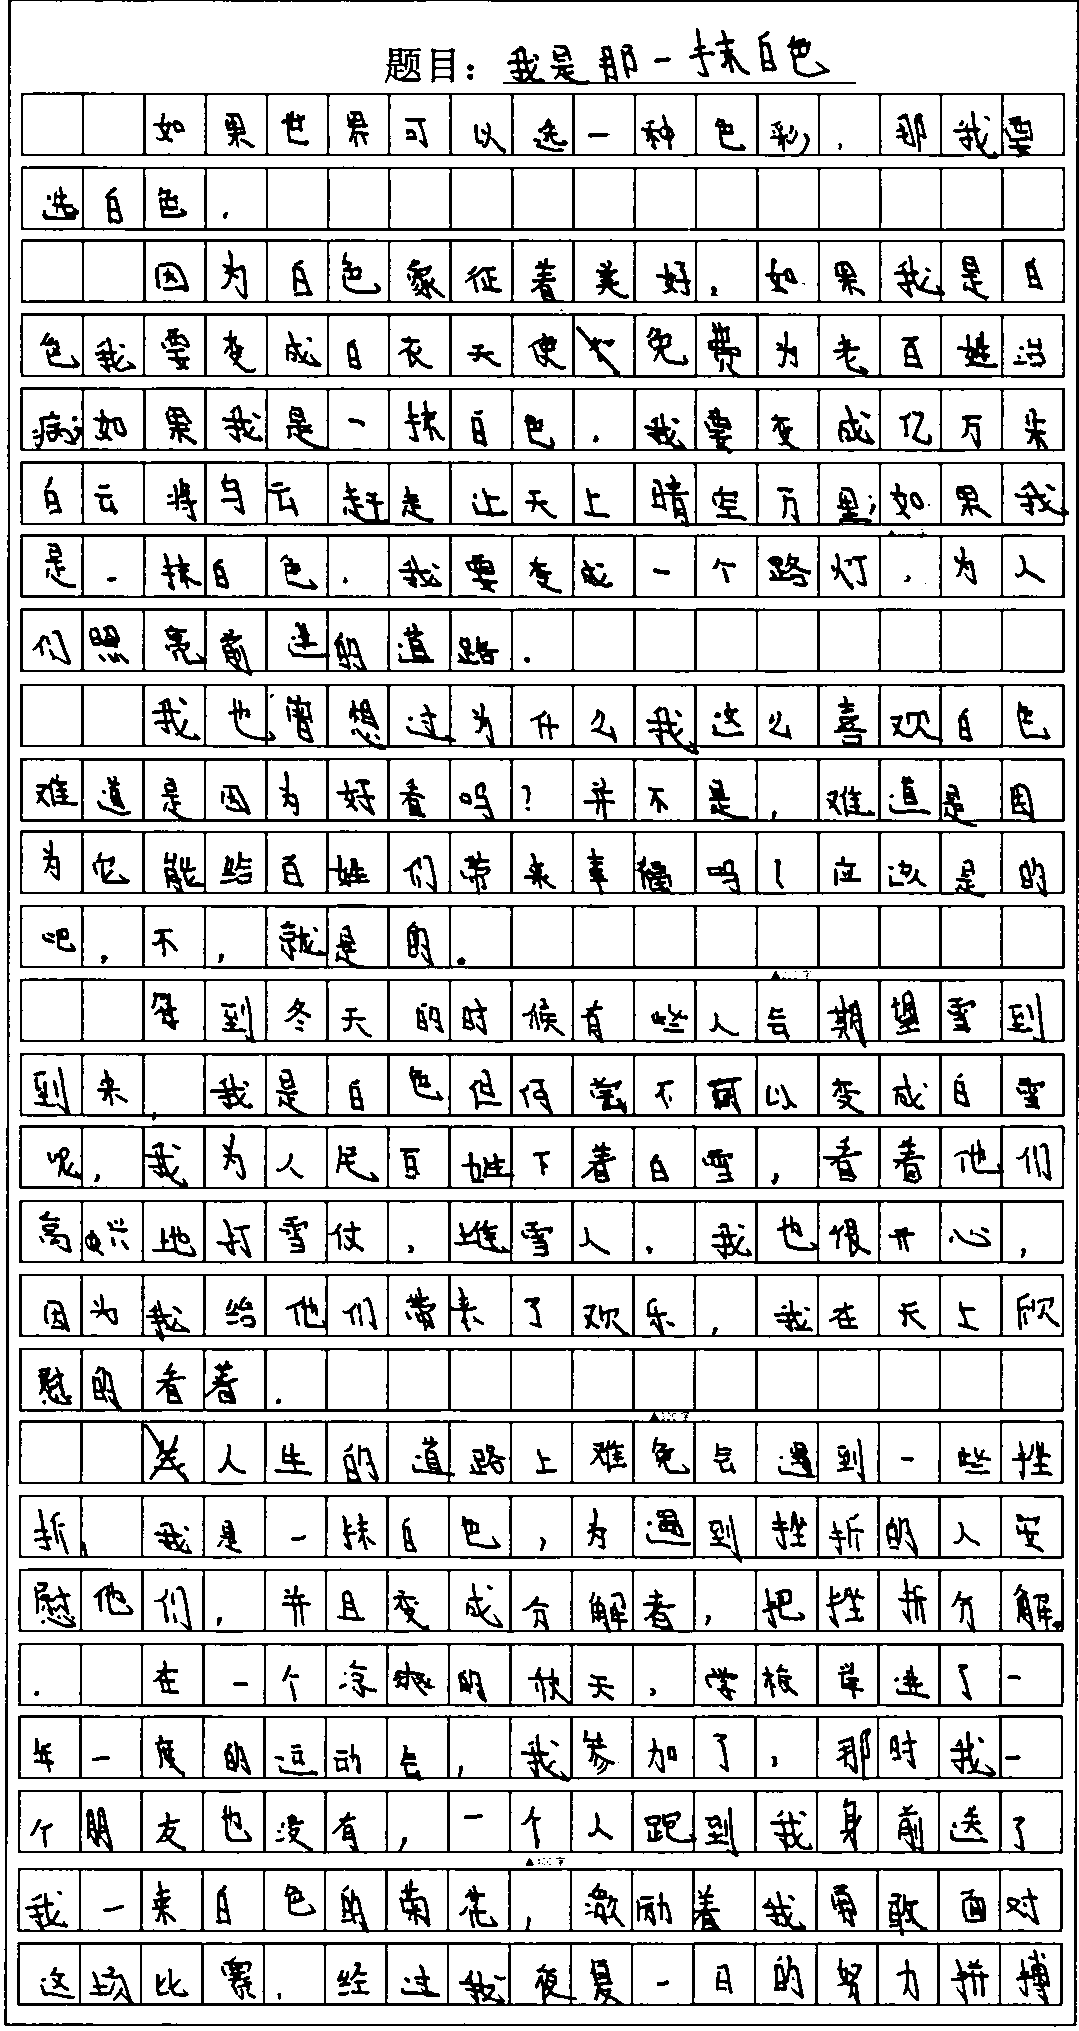 题目：我是那一抹白色
如果世界可以选一种色彩，那我要
选白色.
因为白色象征着美好.如果我是白
色我要变成白衣天使免费为老百姓治
病；如果我是一抹白色.我要变成亿万朵
白云将乌云赶走让天上晴空万里；如果我
是一抹白色.我要变成一个路灯，为人
们照亮前进的道路.
我也曾想过为什么我这么喜欢白色
难道是因为好看吗？并不是，难道是因
为它能给百姓们带来幸福吗！应该是的
吧，不，就是的.
每到冬天的时候有些人会期望雪到
到来，我是白色但何尝不可以变成白雪
呢，我为人民百姓下着白雪，看着他们
高兴地打雪仗，堆雪人.我也很开心，
因为我给他们带来了欢乐，我在天上欣
慰的看着.
人生的道路上难免会遇到一些挫
折，我是一抹白色，为遇到挫折的人安
慰他们，并且变成分解者，把挫折分解.
.在一个凉爽的秋天，学校举进了一
年一度的运动会，我参加了，那时我一
个朋友也没有，一个人跑到我身前送了
我一束白色的菊花，激励着我勇敢面对
这场比赛.经过我夜复一日的努力拼搏